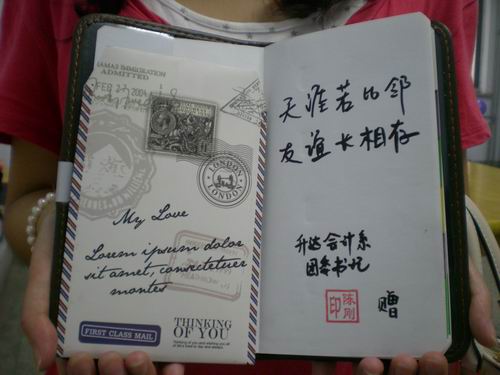 AMAS IMMIGRATION
ADMITTED
FEB 27 2004
LONDON
LONDON
My Love
Lorem ipsum dolor
sit amet, consectetuer
montes
FIRST CLASS MAIL
THINKING
OF YOU!
天涯若比邻
友谊长相存
升达会计系
团委书记
陈刚
印
赠